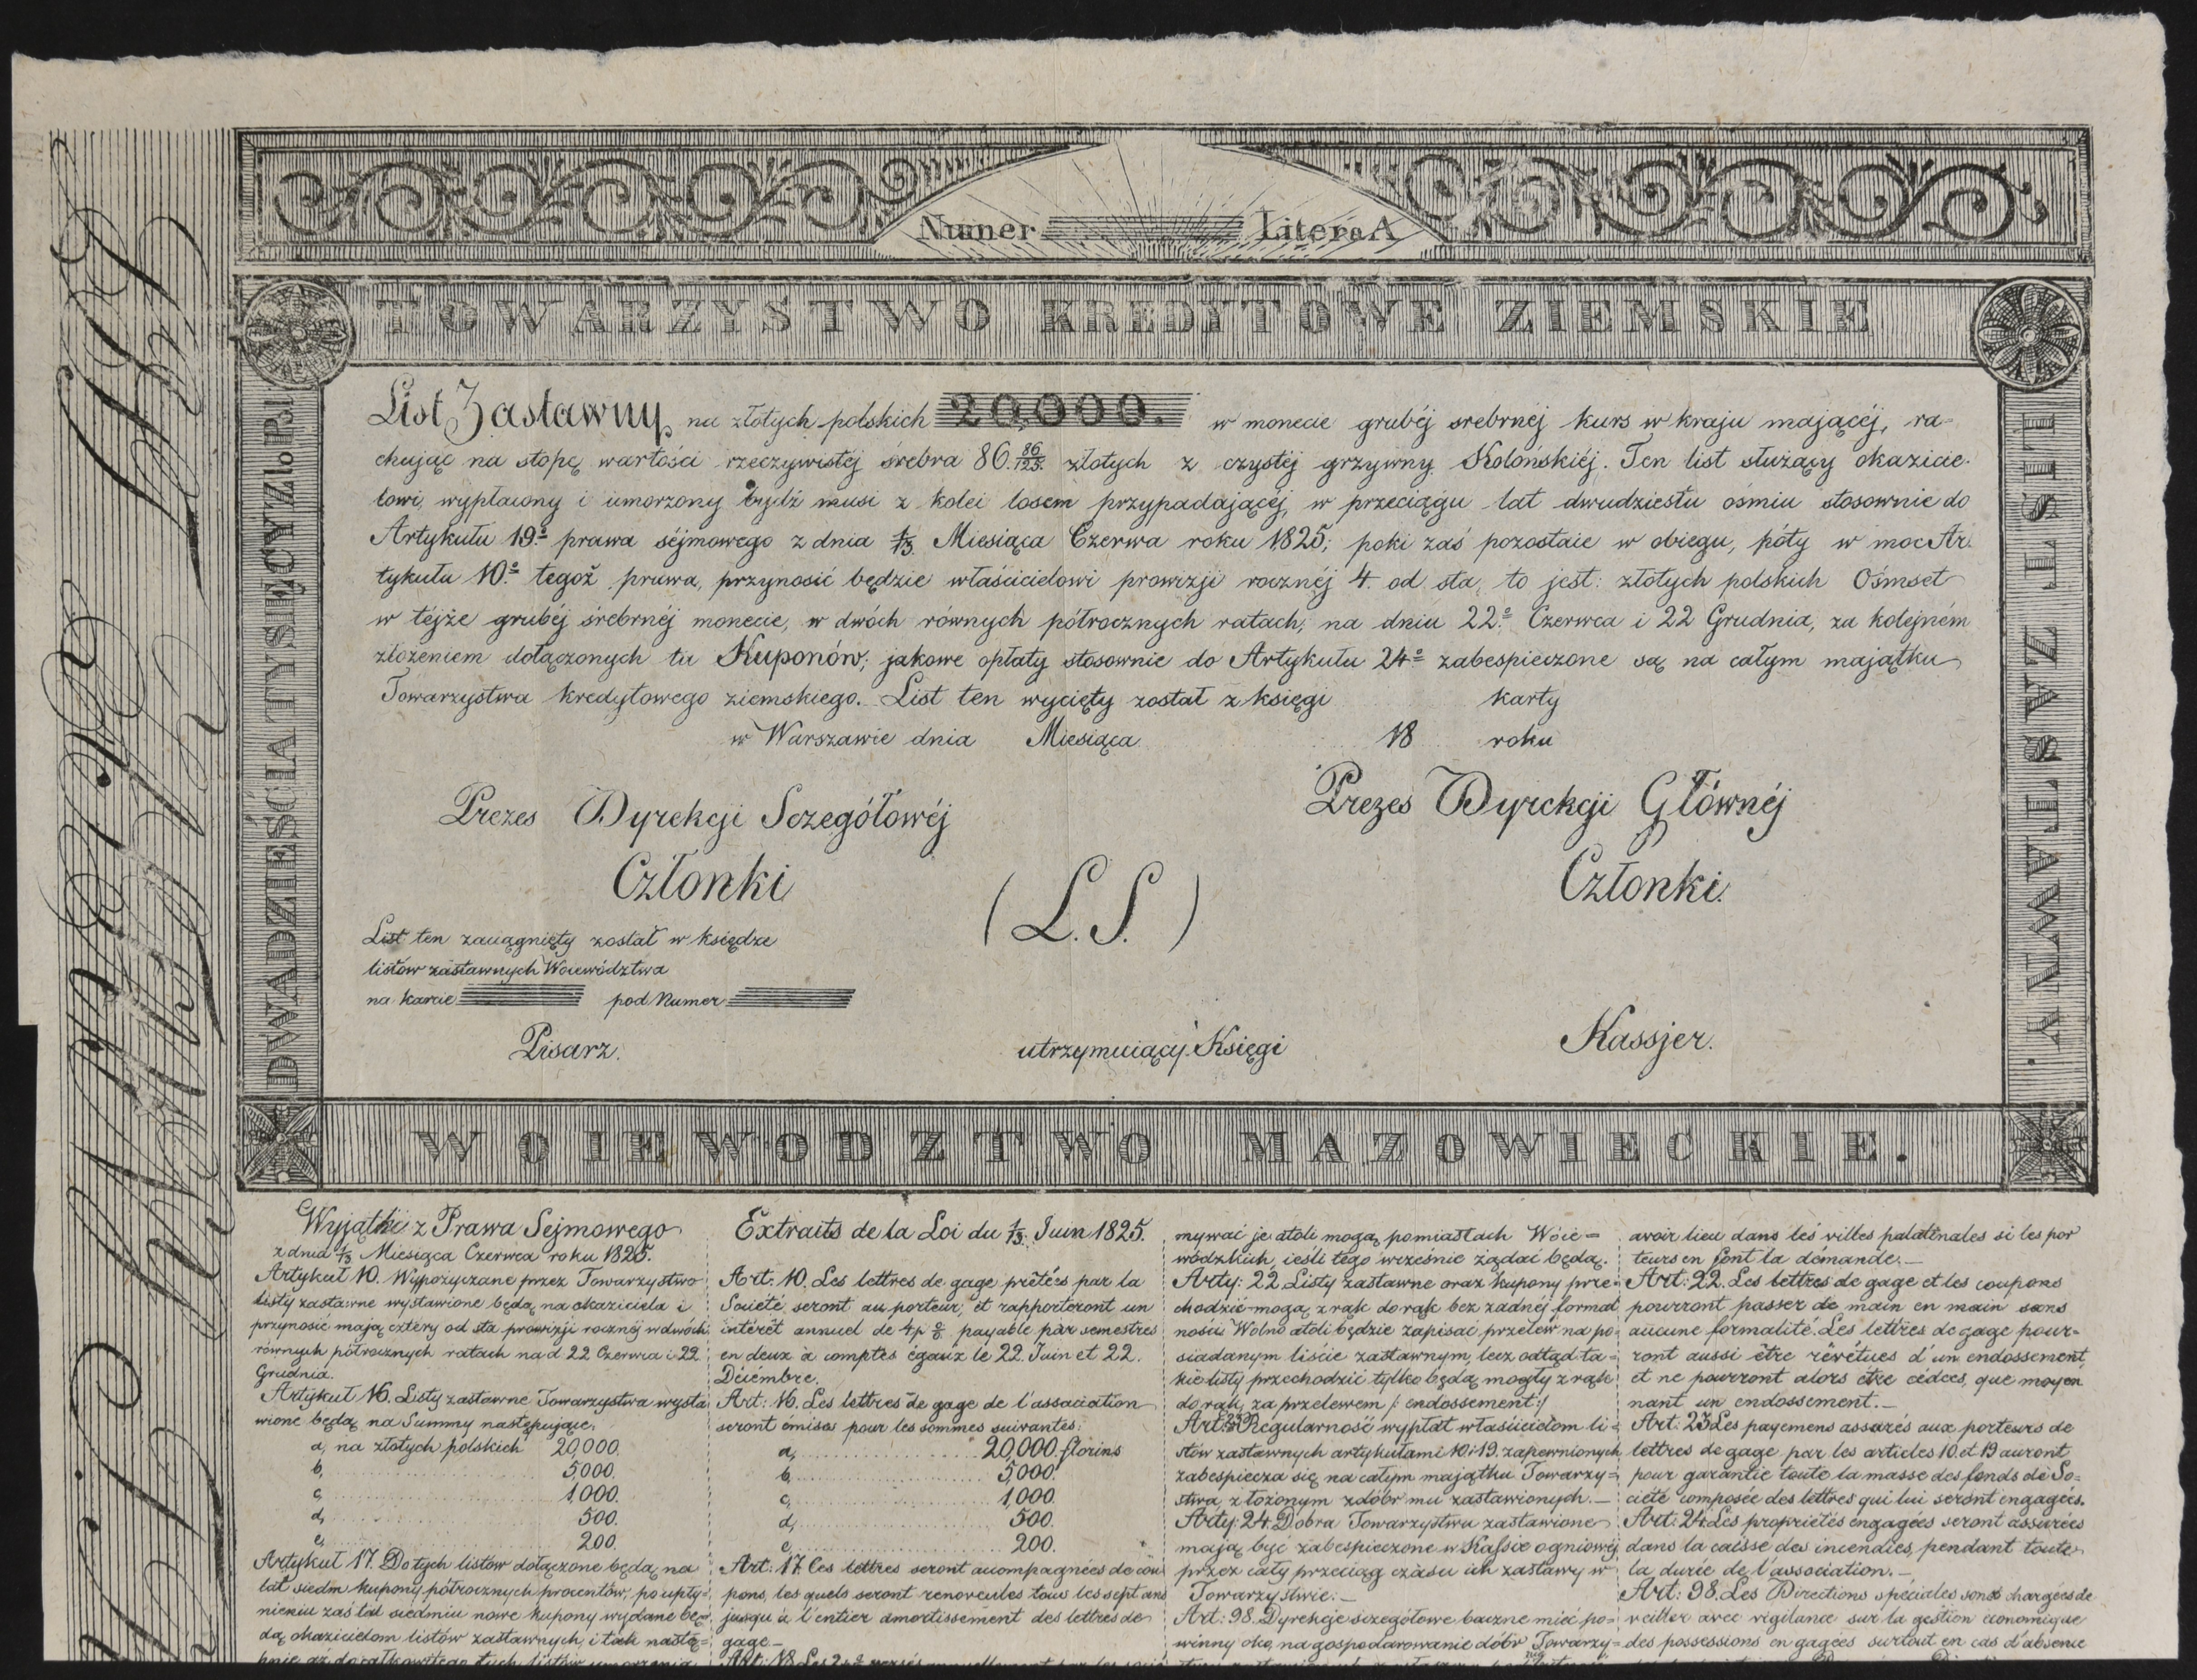 Numer Litera A
TOWARZYSTWO KREDYTOWE ZIEMSKIE
DWADZIEŚCIA TYSIĘCY ZŁO: P:
LIST ZASTAWNY.
List Zastawny na złotych polskich 20,000. w monecie grubéj srebrnéj kurs w kraju mającéj, ra-
chując na stopę wartości rzeczywistéj śrebra 86. 86/125. złotych z czystéj grzywny Kolońskiéj. Ten list służący okazicie-
lowi, wypłacony i umorzony bydź musi z kolei losem przypadającéj, w przeciągu lat dwudziestu ośmiu stosownie do
Artykułu 19º prawa séjmowego z dnia 1/13 Miesiąca Czerwca roku 1825; poki zaś pozostaie w obiegu, póty w moc Ar-
tykułu 10º tegoż prawa, przynosić będzie właścicielowi prowizji rocznéj 4. od sta, to jest: złotych polskich Ośmset
w téjże grubéj śrebrnéj monecie, w dwóch równych półrocznych ratach, na dniu 22º Czerwca i 22 Grudnia, za kolejném
złożeniem dołączonych tu Kuponów; jakowe opłaty stosownie do Artykułu 24º zabespieczone są na całym majątku
Towarzystwa kredytowego ziemskiego. List ten wycięty został z księgi karty
w Warszawie dnia Miesiąca 18 roku
Prezes Dyrekcji Sczegółowéj Prezes Dyrekcji Głównéj
Członki Członki.
(L.S.)
List ten zaciągnięty został w księdze
listów zastawnych Woiewództwa
na karcie pod Numer
Pisarz. utrzymuiący Księgi Kassjer.
WOIEWODZTWO MAZOWIECKIE.
Wyjątki z Prawa Sejmowego
z dnia 1/13 Miesiąca Czerwca roku 1825.
Artykuł 10. Wypożyczane przez Towarzystwo
listy zastawne wystawione będą na okaziciela i
przynosić mają cztéry od sta prowizji rocznéj w dwóch
równych półrocznych ratach na d 22 Czerwca i 22
Grudnia.
Artykuł 16. Listy zastawne Towarzystwa wysta
wione będą na Summy następujące.
a, na złotych polskich 20,000.
b, 5,000.
c, 1,000.
d, 500.
e, 200.
Artykuł 17. Do tych listów dołączone będą na
lat siedm kupony półrocznych procentów, po upły-
nieniu zaś lat siedmiu nowe kupony wydane bę-
dą okazicielom listów zastawnych, i tak nastę-
pnie aż do całkowitego tych listów umorzenia
Extraits de la Loi du 1/13. Juin 1825.
Art: 10. Les lettres de gage prêtées par la
Société seront au porteur, et rapporteront un
intérêt annuel de 4 p % payable par semestres
en deux à comptes égaux le 22. Juin et 22.
Décembre.
Art: 16. Les lettres de gage de l'association
seront émises pour les sommes suivantes:
a, 20,000 florins
b, 5000.
c, 1,000.
d, 500.
e, 200.
Art: 17. Ces lettres seront accompagnées de cou
pons, les quels seront renouvelés tous les sept ans
jusqu'à l'entier amortissement des lettres de
gage.—
Art: 18. Les
mywać je atoli mogą po miastach Woie=
wódzkich, ieśli tego wcześnie żądać będą.
Arty: 22. Listy zastawne oraz kupony prze-
chodzić mogą z rąk do rąk bez żadnéj formal
ności. Wolno atoli będzie zapisać przelew na po-
siadanym liście zastawnym, lecz odtąd ta-
kie listy przechodzić tylko będą mogły z rąk
do rąk, za przelewem /: endossement :/
Art: 23 Regularność wypłat właścicielom li-
stów zastawnych artykułami 10 i 19. zapewnionych,
zabespiecza się na całym majątku Towarzy-
stwa, złożonym z dóbr mu zastawionych.—
Arty: 24. Dobra Towarzystwu zastawione
mają być zabespieczone w Kassie ogniowéj
przez cały przeciąg czasu ich zastawy w
Towarzystwie.—
Art: 98. Dyrekcje sczegółowe baczne mieć po-
winny oko, na gospodarowanie dóbr Towarzy-
avoir lieu dans les villes palatinales si les por
teurs en font la démande.—
Art: 22. Les lettres de gage et les coupons
pourront passer de main en main sans
aucune formalité. Les lettres de gage pour-
ront aussi être rêvétues d'un endossement,
et ne pourront alors être cédées, que moyen
nant un endossement.—
Art: 23. Les payemens assurés aux porteurs de
lettres de gage par les articles 10. et 19 auront
pour garantie toute la masse des fonds de So-
ciété composée des lettres qui lui seront engagées.
Art: 24. Les propriétés engagées seront assurées
dans la caisse des incendies, pendant toute
la durée de l'association.—
Art: 98. Les Directions spéciales sont chargées de
veiller avec vigilance sur la gestion économique
des possessions engagées surtout en cas d'absence